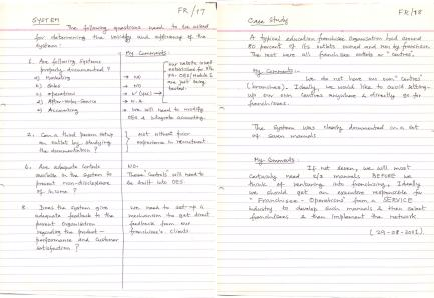 FR/17
SYSTEM
The following questions need to be asked
for determining the validity and efficiency of the
system:
My Comments:
1. Are following systems
properly documented?
a) Marketing → NO
b) Sales → NO
c) Operations
d) After-Sales-Service → N.A.
e) Accounting → We will need to modify
OES & integrate accounting.
2. Can a third person setup
an outlet by studying
the documentation?
Not without prior
experience in recruitment
4. Are adequate controls
available in the system to
prevent non-disclosure
of income?
NO.
These "Controls" will need to
be built into OES.
8. Does the system give
adequate feedback to the
parent organisation
regarding the product-
performance and customer
satisfaction?
We need to set-up a
mechanism to get direct
feedback from our
franchisee's clients
FR/18
Case Study
A typical education franchisee organisation had around
80 percent of its outlets owned and run by franchisees.
The rest were all franchisor outlets or "centres".
My Comments:-
We do not have our own "centres"
(branches). Ideally, we would like to avoid setting-
up our own centres anywhere & directly go for
franchisees.
The System was clearly documented in a set
of seven manuals
My Comments:
If not seven, we will most
certainly need 2/3 manuals BEFORE we
think of venturing into franchising. Ideally
we should get an executive responsible for
"Franchisee-Operations" from a SERVICE
industry to develop such manuals & then select
franchisees & then implement the network
(29-08-2001)